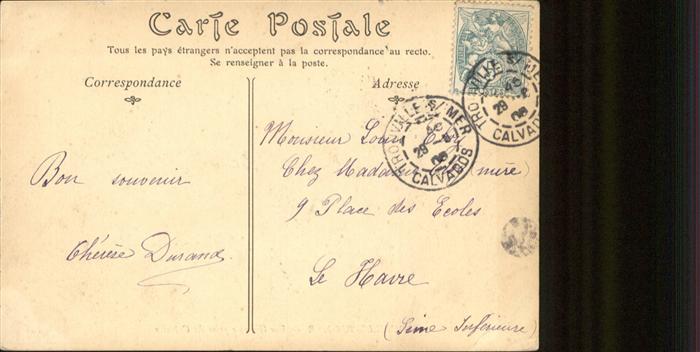 Carte Postale
Tous les pays étrangers n'acceptent pas la correspondance au recto.
Se renseigner à la poste.
Correspondance
Adresse
Bon souvenir
Thérèse Durand
Monsieur Louis
Chez Madame (mère)
9 Place des Ecoles
Le Havre
(Seine Inférieure)
TROUVILLE S/MER
CALVADOS
TROUVILLE S/MER
CALVADOS